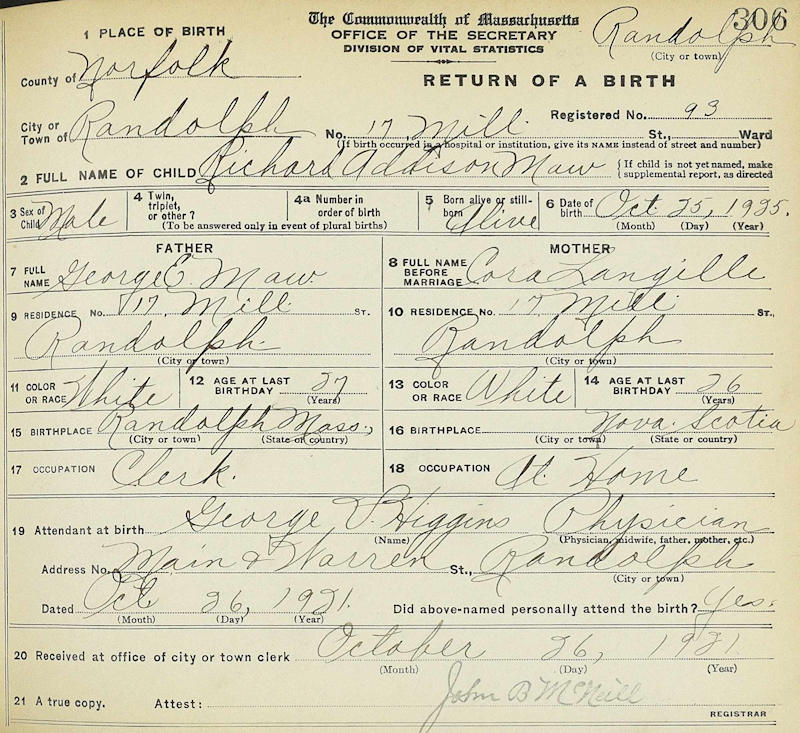 306
The Commonwealth of Massachusetts
OFFICE OF THE SECRETARY
DIVISION OF VITAL STATISTICS
Randolph
(City or town)
1 PLACE OF BIRTH
County of Norfolk
RETURN OF A BIRTH
Registered No. 93
City or Town of Randolph No. 17 Mill St., Ward
(If birth occurred in a hospital or institution, give its NAME instead of street and number)
2 FULL NAME OF CHILD Richard Addison Maw {If child is not yet named, make supplemental report, as directed
3 Sex of Child Male 4 Twin, triplet, or other? 4a Number in order of birth (To be answered only in event of plural births) 5 Born alive or still-born Alive 6 Date of birth Oct 25, 1925.
(Month) (Day) (Year)
FATHER MOTHER
7 FULL NAME George E. Maw 8 FULL NAME BEFORE MARRIAGE Cora Langille
9 RESIDENCE No. 17 Mill ST. 10 RESIDENCE No. 17 Mill ST.,
Randolph Randolph
(City or town) (City or town)
11 COLOR OR RACE White 12 AGE AT LAST BIRTHDAY 27 (Years) 13 COLOR OR RACE White 14 AGE AT LAST BIRTHDAY 26 (Years)
15 BIRTHPLACE Randolph Mass., 16 BIRTHPLACE Nova Scotia
(City or town) (State or country) (City or town) (State or country)
17 OCCUPATION Clerk. 18 OCCUPATION At Home
19 Attendant at birth George V. Higgins Physician
(Name) (Physician, midwife, father, mother, etc.)
Address No. Main & Warren St., Randolph
(City or town)
Dated Oct. 26, 1921. Did above-named personally attend the birth? Yes.
(Month) (Day) (Year)
20 Received at office of city or town clerk October 26, 1921
(Month) (Day) (Year)
21 A true copy. Attest: John B McNeill
REGISTRAR